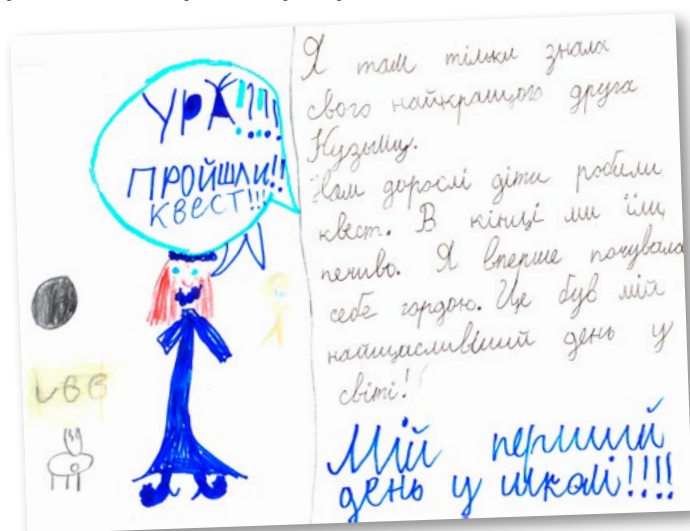 УРА!?!!
ПРОЙШЛИ!!
КВЕСТ!!!
Я там тільки знала
свого найкращого друга
Кузьму.
Нам дорослі діти робили
квест. В кінці ми їли
печиво. Я вперше почувала
себе гордою. Це був мій
найщасливіший день у
світі!
Мій перший
день у школі!!!!